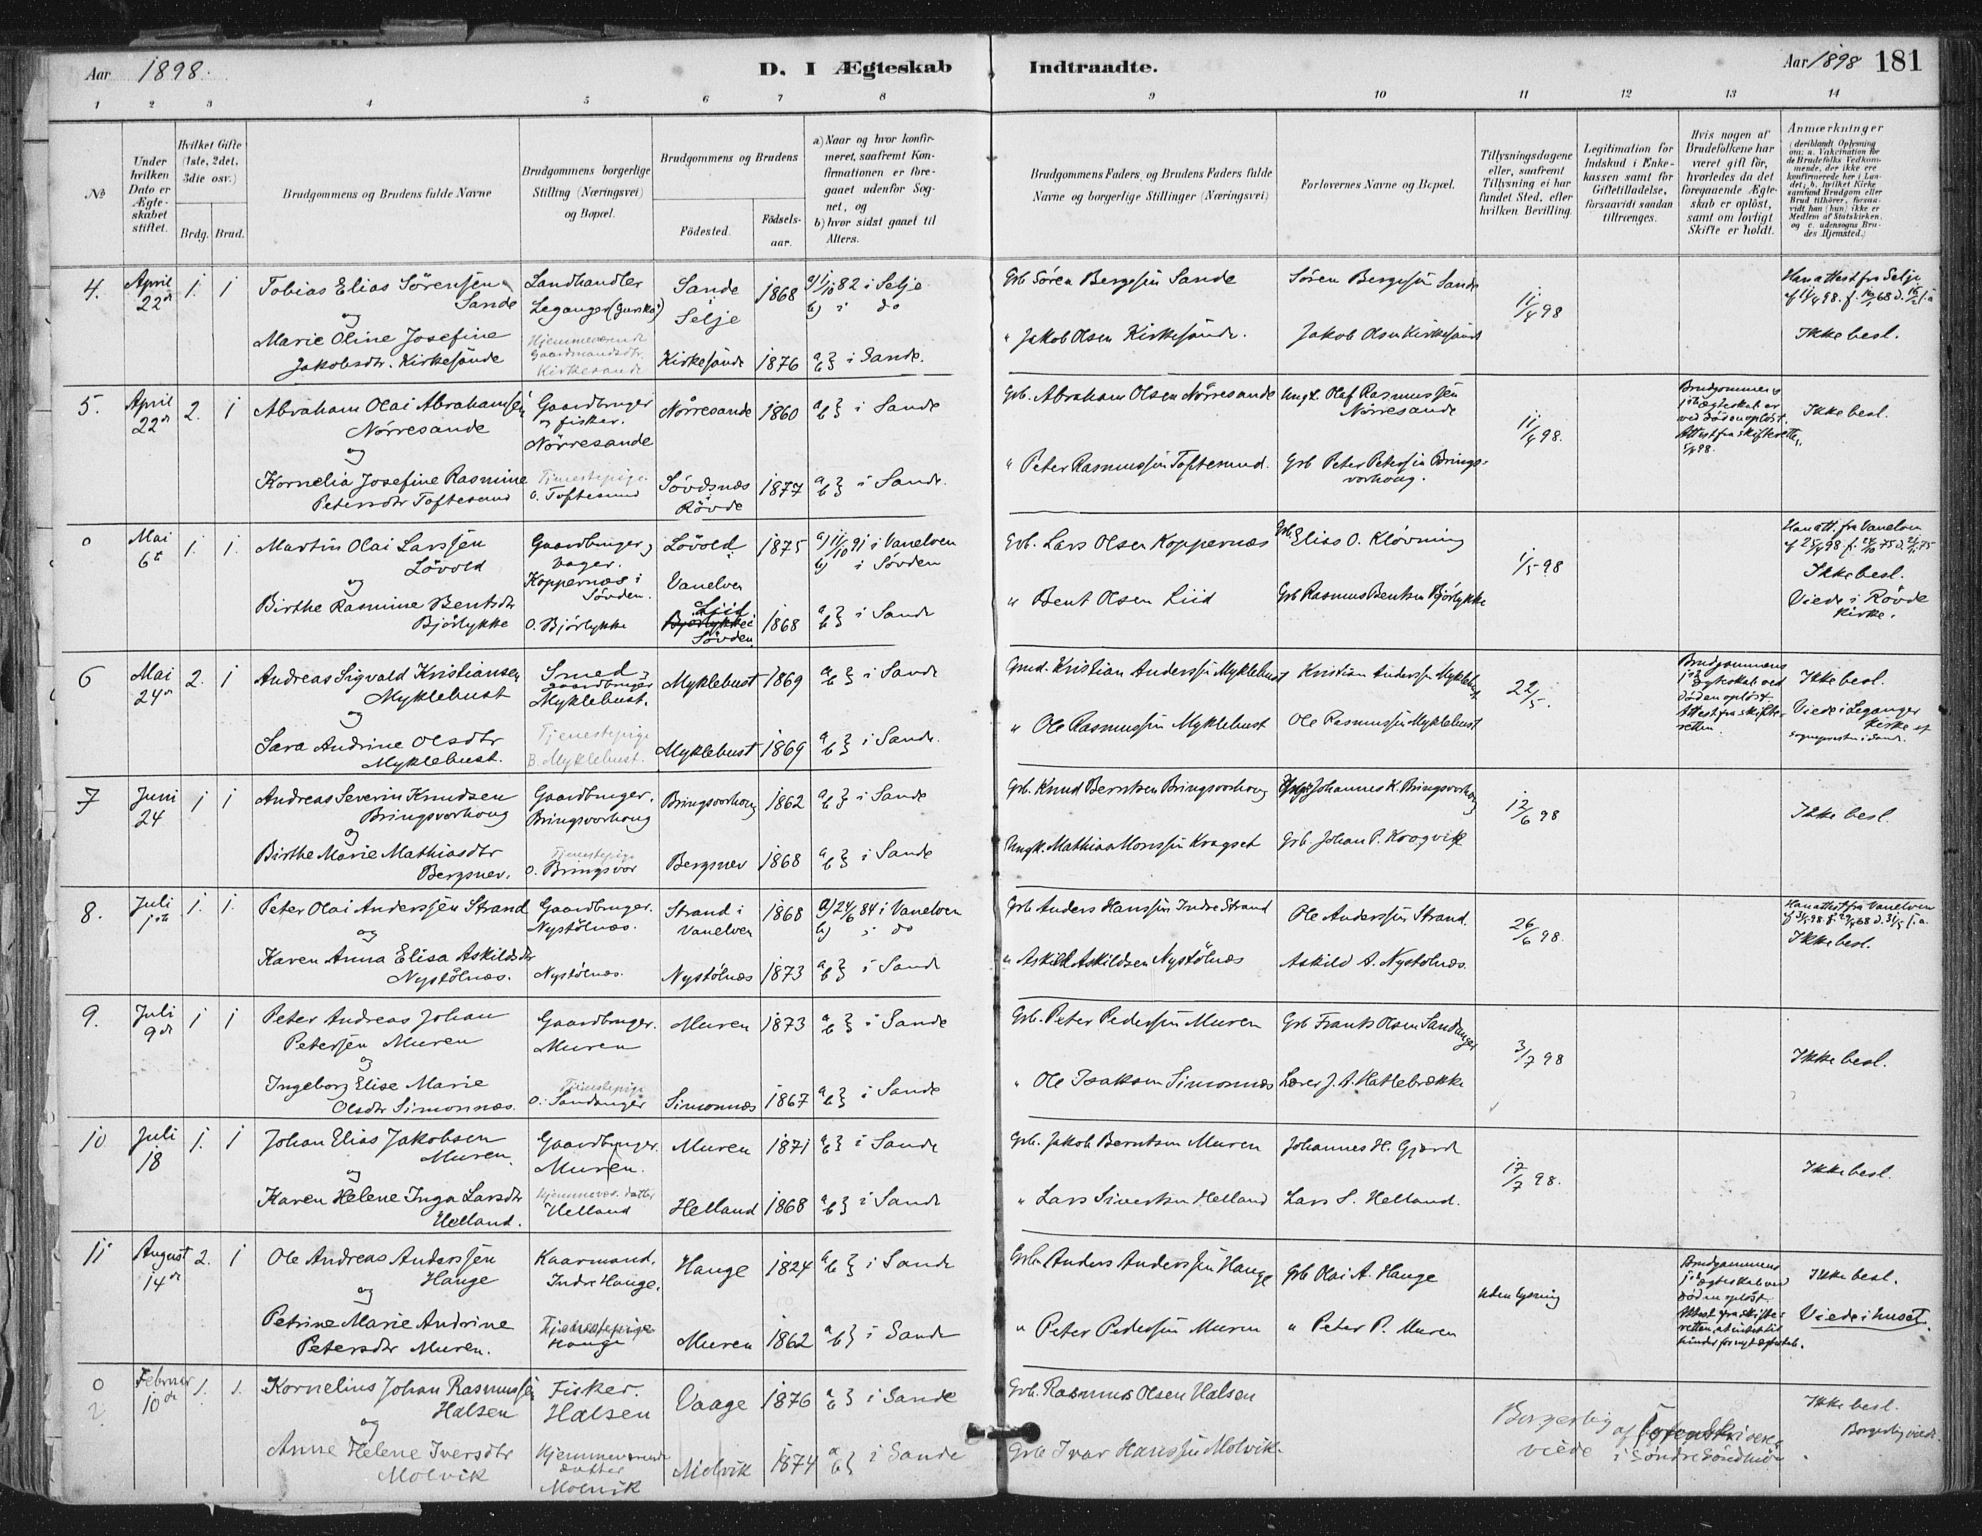 Aar 1898.
D. I Ægteskab Indtraadte.
Aar 1898 181
1 2 3 4 5 6 7 8 9 10 11 12 13 14
No
Under hvilken Dato er Ægteskabet stiftet.
Hvilket Gifte (1ste, 2det, 3die osv.)
Brdg. Brud.
Brudgommens og Brudens fulde Navne
Brudgommens borgerlige Stilling (Næringsvei) og Bopæl.
Brudgommens og Brudens
Födested.
Födsels-aar.
a) Naar og hvor konfirmeret, saafremt Konfirmationen er foregaaet udenfor Sognet, og
b) hvor sidst gaaet til Alters.
Brudgommens Faders, og Brudens Faders fulde Navne og borgerlige Stillinger (Næringsvei)
Forlovernes Navne og Bopæl.
Tillysningsdagene eller, saafremt Tillysning ei har fundet Sted, efter hvilken Bevilling.
Legitimation for Indskud i Enkekassen samt for Giftetilladelse, forsaavidt saadan tiltrænges.
Hvis nogen af Brudefolkene har været gift för, hvorledes da det foregaaende Ægteskab er oplöst, samt om lovligt Skifte er holdt.
Anmærkninger
(deriblandt Oplysning om: a. Vakcination for de Brudefolks Vedkommende, der ikke ere konfirmerede her i Landet; b. hvilket Kirkesamfund Brudgom eller Brud tilhörer, forsaavidt han (hun) ikke er Medlem af Statskirken, og c. udensogns Brudes Hjemsted.)
4. April 22de 1. 1 Tobias Elias Sörensen Sande
Landhandler Leganger (Gurskö)
Sande i Selje 1868 a) 1/10 82 i Selje b) i do
Grb. Sören Bergesen Sande
Sören Bergesen Sande
11/4 98
Han attest fra Selje
og
Marie Oline Josefine Jakobsdtr. Kirkesande
Hjemmeværende Gaardmandsdtr. Kirkesande
Kirkesande 1876 a b} i Sande.
" Jakob Olsen Kirkesande.
Jakob Olsen Kirkesande
Ikke besl.
5. April 22de 2. 1 Abraham Olai Abrahamsen Nörresande
Gaardbruger og fisker. Nörresande
Nörresande 1860 a b} i Sande
Grb. Abraham Olsen Nörresande
Ungk. Olaf Rasmussen Nörresande
11/4 98.
Brudgommens 1ste Ægteskab er ved döden oplöst. Attest fra skifteretten
Ikke besl.
og
Kornelia Josefine Rasmine Petersdtr Toftesund
Tjenestepige o. Toftesund
Sövdsnæs i Rövde 1877 a b} i Sande.
" Peter Rasmussen Toftesund.
Grb Peter Petersen Bringsvorhoug.
0 Mai 6te 1. 1. Martin Olai Larssen Lövold
Gaardbruger, Koppernæs i Sövden.
Lövold i Vanelven 1875 a) 11/10 91 i Vanelven b) i Sövden
Grb. Lars Olsen Koppernæs
Grb. Elias O. Klövning
1/5 98
Han att. fra Vanelven
Ikke besl.
Viede i Rövde Kirke.
og
Birthe Rasmine Bentsdtr Björlykke
o. Björlykke
Liid Björlykke i Sövden. 1868 a b} i Sande
" Bent Olsen Liid
Grb Rasmus Bentsen Björlykke
6 Mai 24de 2. 1 Andreas Sigvald Kristiansen Myklebust
Smed, gaardbruger Myklebust.
Myklebust 1869 a b} i Sande
Gmd. Kristian Anderssen Myklebust
Kristian Anderssen Myklebust
22/5.
Brudgommens 1ste Ægteskab ved döden oplöst. Attest fra skifteretten.
Ikke besl.
Viede i Leganger Kirke af sognepresten i Sande.
og
Sara Andrine Olsdtr Myklebust.
Tjenestepige B. Myklebust.
Myklebust 1869 a b} i Sande.
" Ole Rasmussen Myklebust
Ole Rasmussen Myklebust
7 Juni 24 1 1 Andreas Severin Knudsen Bringsvorhoug
Gaardbruger. Bringsvorhoug
Bringsvorhoug 1862 a b} i Sande
Grb. Knud Berntsen Bringsvorhoug
Johannes K. Bringsvorhoug
12/6 98
Ikke besl.
og
Birthe Marie Mathiasdtr Bergsnev.
Tjenestepige o. Bringsvor
Bergsnev 1868 a b} i Sande
Ungk. Mathias Monssen Kragset
Grb. Johan P. Krogvik
8. Juli 1ste 1. 1. Peter Olai Anderssen Strand
Gaardbruger. Nystölnæs.
Strand i Vanelven 1868 a) 24/6 84 i Vanelven b) i do
Grb Anders Hanssen Indre Strand
Ole Anderssen Strand.
26/6 98.
Han attest fra Vanelven
Ikke besl.
og
Karen Anna Elisa Askildsdtr Nystölnæs.
Nystölnæs.
Nystölnæs 1873 a b} i Sande
" Askild Askildsen Nystölnæs
Askild A. Nystölnæs.
9. Juli 9de 1 1 Peter Andreas Johan Petersen Muren
Gaardbruger. Muren
Muren 1873 a b} i Sande
Grb. Peter Pedersen Muren
Grb Frants Olsen Sandanger
3/7 98
Ikke besl.
og
Ingeborg Elise Marie Olsdtr Simonnæs.
Tjenestepige o. Sandanger
Simonnæs 1867 a b} i Sande
" Ole Isaksen Simonnæs
Lærer J. A. Hatlebrække
10 Juli 18 1. 1 Johan Elias Jakobsen Muren.
Gaardbruger. Muren.
Muren 1871 a b} i Sande
Grb. Jakob Berntsen Muren
Johannes H. Gjærde
17/7 98.
Ikke besl.
og
Karen Helene Inga Larsdtr Helland.
Hjemmevær. datter Helland
Helland 1868 a b} i Sande
" Lars Sivertsen Helland
Lars S. Helland.
11 August 14de 2. 1 Ole Andreas Anderssen Hauge
Kaarmand. Indre Hauge.
Hauge 1824 a b} i Sande
Grb. Anders Anderssen Hauge
Grb Olai A. Hauge
Uden lysning
Brudgommens 1ste Ægteskab ved döden oplöst. Attest fra skifteretten, at intet er til hinder for nyt ægteskab.
Ikke besl.
Viede i huset.
og
Petrine Marie Andrine Petersdtr Muren.
Tjenestepige Hauge
Muren 1862 a b} i Sande
" Peter Pedersen Muren
" Peter P. Muren
0 2 Februar 10de 1. 1. Kornelius Johan Rasmussen Halsen
Fisker. Halsen
Vaage 1876 a b} i Sande
Grb. Rasmus Olsen Halsen
Ikke besl.
Borgerlig viede.
og
Anne Helene Iversdtr Molvik
Hjemmeværende datter Molvik
Molvik 1874 a b} i Sande
Grb Ivar Hanssen Molvik.
Borgerlig viede af Sorenskriveren i Söndre Söndmör.